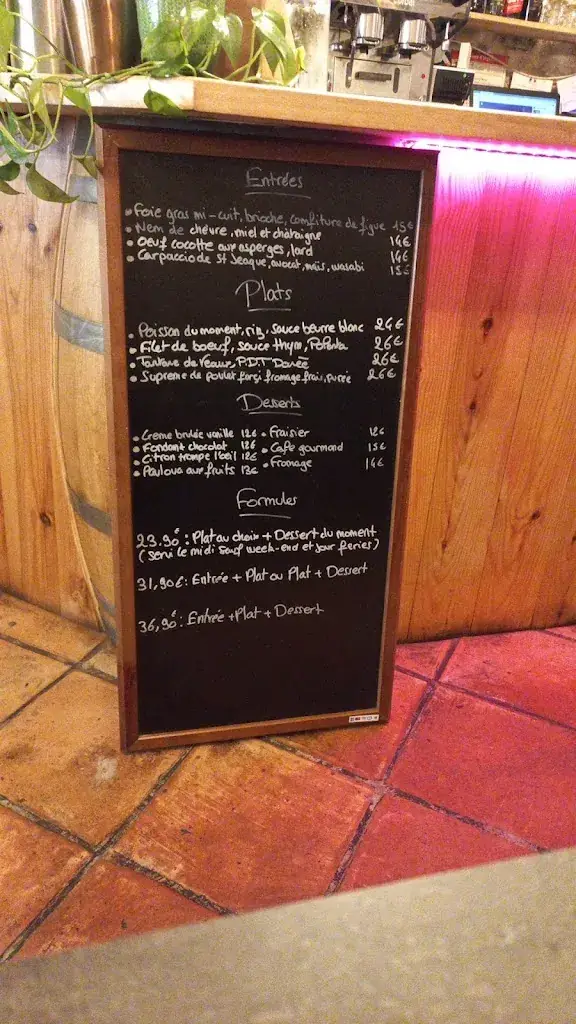 Entrées
• Foie gras mi-cuit, brioche, confiture de figue 15€
• Nem de chèvre, miel et chataigne 14€
• Oeuf cocotte aux asperges, lard 14€
• Carpaccio de St Jeaque, avocat, maïs, wasabi 15€
Plats
• Poisson du moment, riz, sauce beurre blanc 24€
• Filet de boeuf, sauce thym, Polenta 26€
• Tartare de veaux, P.D.T Dorée 26€
• Supreme de poulet farçi fromage frais, purée 26€
Desserts
• Creme brulée vanille 12€ • Fraisier 12€
• Fondant chocolat 12€ • Café gourmand 15€
• Citron trompe l'oeil 12€ • Fromage 14€
• Pavlova aux fruits 13€
Formules
23.90€ : Plat au choix + Dessert du moment
(servi le midi sauf week-end et jour feries)
31,90€ : Entrée + Plat ou Plat + Dessert
36,90€ : Entrée + Plat + Dessert